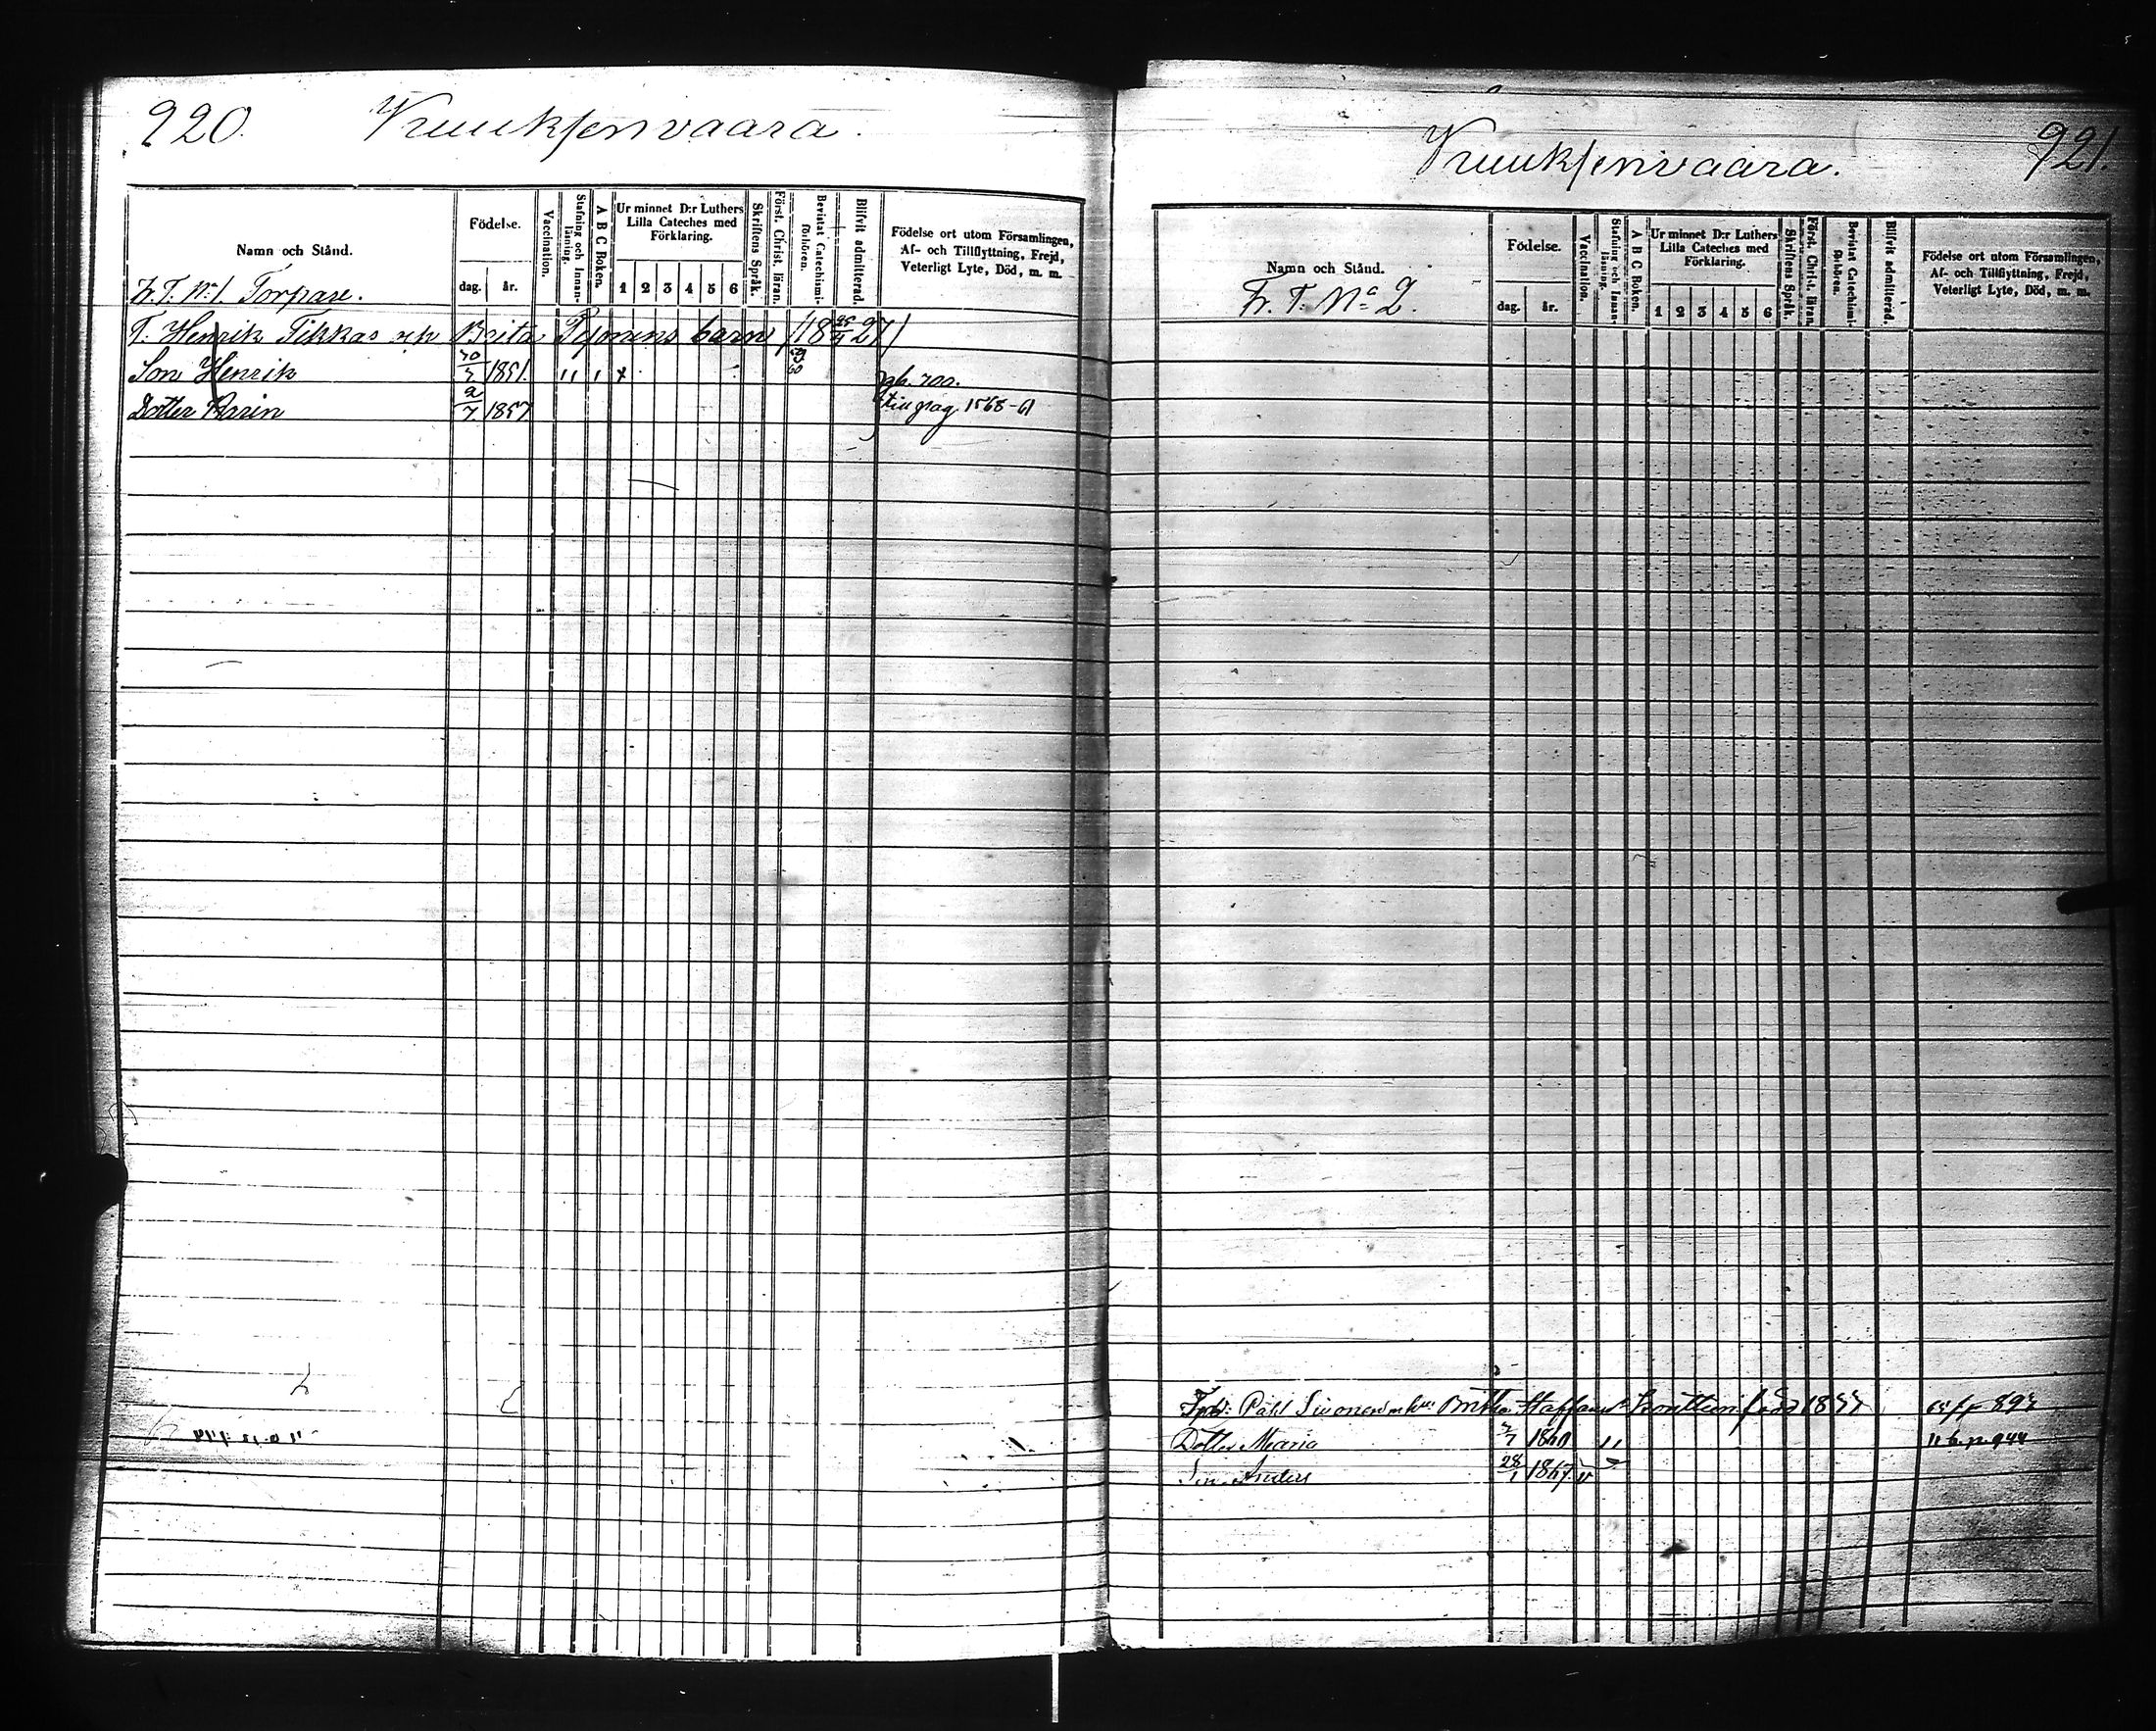 920. Kuuksenvaara.
Namn och Stånd.
Födelse.
dag. år.
Vaccination.
Stafning och Innanläsning.
A B C Boken.
Ur minnet D:r Luthers Lilla Cateches med Förklaring.
1 2 3 4 5 6
Skriftens Språk.
Först. Christ. läran.
Bevistat Catechismiförhören.
Blifvit admitterad.
Födelse ort utom Församlingen, Af- och Tillflyttning, Frejd, Veterligt Lyte, Död, m. m.
Fr. T. No 1. Torpare.
T. Henrik Tikkas och Brita barn
Son Henrik 1851.
Dotter Karin 2/7 1857 pag. 1568-61
Kuuksenvaara. 921.
Namn och Stånd.
Födelse.
dag. år.
Vaccination.
Stafning och Innanläsning.
A B C Boken.
Ur minnet D:r Luthers Lilla Cateches med Förklaring.
1 2 3 4 5 6
Skriftens Språk.
Först. Christ. läran.
Bevistat Catechismiförhören.
Blifvit admitterad.
Födelse ort utom Församlingen, Af- och Tillflyttning, Frejd, Veterligt Lyte, Död, m. m.
Fr. T. No 2.
Påhl Sivonen
Dotter Maria 1860
Son Anders 28/1 1867